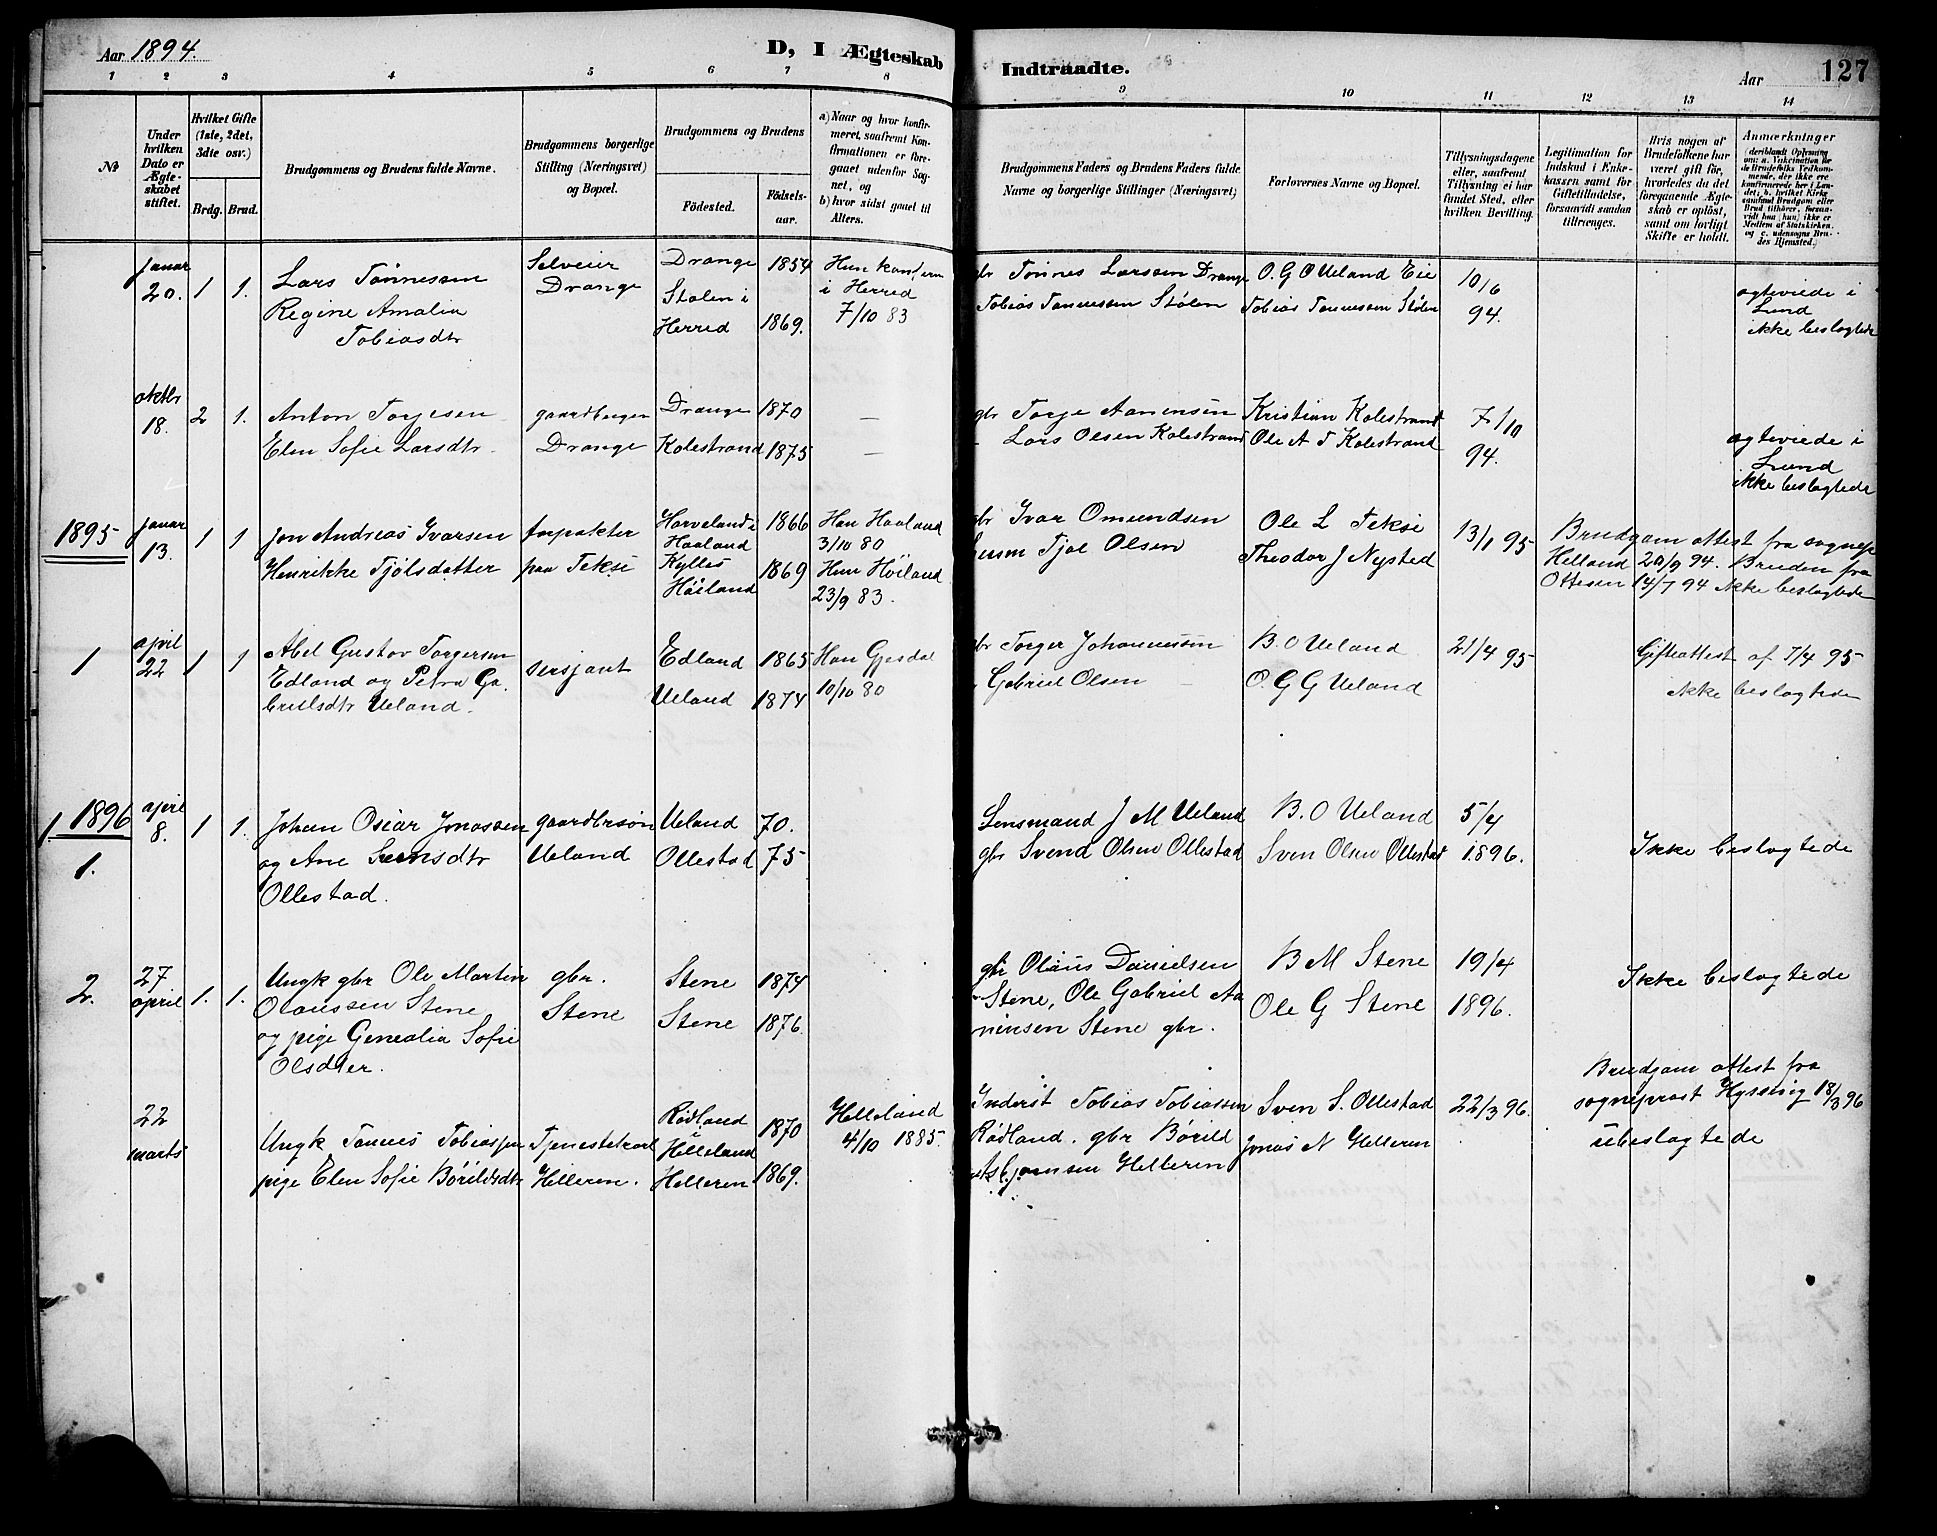 Aar 1894.
D, I Ægteskab Indtraadte.
Aar
127
1 2 3 4 5 6 7 8 9 10 11 12 13 14
№
Under hvilken Dato er Ægteskabet stiftet.
Hvilket Gifte (1ste, 2det, 3dte osv.)
Brdg. Brud.
Brudgommens og Brudens fulde Navne.
Brudgommens borgerlige Stilling (Næringsvei) og Bopæl.
Brudgommens og Brudens
Födested.
Födsels-aar.
a) Naar og hvor konfirmeret, saafremt Konfirmationen er foregaaet udenfor Sognet, og
b) hvor sidst gaaet til Alters.
Brudgommens Faders og Brudens Faders fulde Navne og borgerlige Stillinger (Næringsvei)
Forlovernes Navne og Bopæl.
Tillysningsdagene eller, saafremt Tillysning ei har fundet Sted, efter hvilken Bevilling.
Legitimation for Indskud i Enkekassen samt for Giftetilladelse, forsaavidt saadan tiltrænges.
Hvis nogen af Brudefolkene har været gift för, hvorledes da det foregaaende Ægteskab er oplöst, samt om lovligt Skifte er holdt.
Anmærkninger
januar 20. 1 1.
Lars Tönnessen
Regine Amalia
Tobiasdtr
Selveier
Drange
Drange 1854
Stolen i
Herred 1869.
Hun konf
i Herred
7/10 83
gbr Tönnes Larssen Drange
Tobias Tönnessen Stölen
O. G O Ueland Eie
Tobias Tönnessen Stölen
10/6
94.
ægteviede i
Lund
ikke beslægtede
oktbr 18. 2 1.
Anton Torjesen
Elen Sofie Larsdtr.
gaardbruger
Drange
Drange 1870
Kolestrand 1875
—
—
gbr Torje Aanensen
Lars Olsen Kolestrand
Kristian Kolestrand
Ole A T Kolestrand
7/10
94.
ægteviede i
Lund
ikke beslægtede
1895
januar 13. 1 1
Jon Andreas Ivarsen
Henrikke Tjölsdatter
forpakter
paa Teksi
Harveland i
Haaland 1866
Kylles
Höiland 1869
Han Haaland
3/10 80
Hun Höiland
23/9 83.
gbr Ivar Omundsen
Tjöl Olsen
Ole L Teksi
Theodor J Nysted
13/1 95
Brudgom attest fra sognep
Helland 20/9 94. Bruden fra
Ottesen 14/7 94 ikke beslægtede
1
april 22 1 1
Abel Gustav Torgersen
Edland og Petra Ga-
brielsdtr Ueland.
sersjant
Edland 1865
Ueland 1874
Han Gjesdal
10/10 80
gbr Torger Johannessen
Gabriel Olsen
B. O Ueland
O. G G Ueland
21/4 95
Gifteattest af 7/4 95
ikke beslægtede
1896
1.
april 8. 1 1.
Johan Oskar Jonassen
og Ane Svensdtr
Ollestad.
gaardbrsön
Ueland
Ueland 70.
Ollestad 75
Lensmand J M Ueland
gbr Svend Olsen Ollestad
B. O Ueland
Sven Olsen Ollestad
5/4
1896.
Ikke beslægtede
2.
27 april 1. 1.
Ungk gbr Ole Martin
Olaussen Stene
og pige Genealia Sofie
Olsdtter.
gbr.
Stene
Stene 1874
Stene 1876.
gbr Olaus Danielsen
Stene, Ole Gabriel Aa
nensen Stene gbr.
B M Stene
Ole G Stene
19/4
1896.
Ikke beslægtede
22 marts
Ungk Tönnes Tobiassen
pige Elen Sofie Börildsdtr
Tjenestekarl
Helleren.
Rödland
Helleland 1870
Helleren 1869.
Helleland
4/10 1885.
Inderst Tobias Tobiassen
Rödland. gbr Börild
Helleren
Sven S. Ollestad
Jonas N Helleren
22/3 96.
Brudgom attest fra
sogneprest Hyssing 18/3 96
ubeslægtede